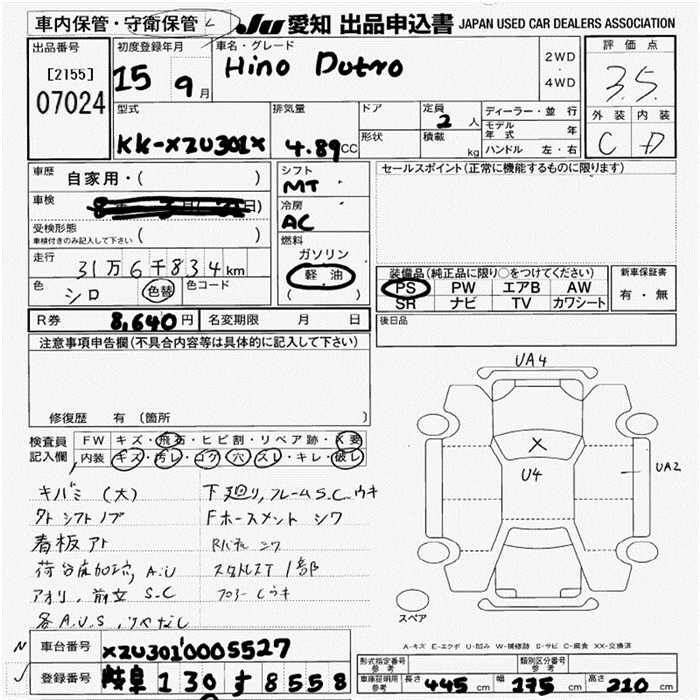 車内保管・守衛保管 L JU 愛知 出品申込書 JAPAN USED CAR DEALERS ASSOCIATION
出品番号 初度登録年月 車名・グレード 評価点
[2155] 15 9月 Hino Dutro 2WD・4WD 3.5
07024
型式 排気量 ドア 定員 ディーラー・並行 外装 内装
KK-XZU301X 4.89CC 形状 2人 モデル年式 年 C D
積載 kg ハンドル 左・右
車歴 自家用・( ) シフト セールスポイント(正常に機能するものに限ります)
MT
車検 冷房
AC
受検形態 車検付きのみ記入して下さい ( ) 燃料
ガソリン
走行 31万6千834km 軽油
( )
装備品(純正品に限り○をつけてください) 新車保証書
色 シロ 色替 色コード PS PW エアB AW 有・無
SR ナビ TV カワシート
R券 8,640円 名変期限 月 日 後日品
注意事項申告欄(不具合内容等は具体的に記入して下さい)
修復歴 有 (箇所
検査員記入欄 FW キズ・飛石・ヒビ割・リペア跡・X要
内装 キズ・汚レ・コゲ・穴・スレ・キレ・破レ
キバミ(大) 下廻り,フレームS.Cウキ
タトシフトノブ Fホースメント シワ
看板アト Rパネル シワ
荷台底加工,A.U スタルスT 1部
アオリ,前立 S.C フロアーCウキ
各A.U.S,
UA4
X
U4
UA2
スペア
A-キズ E-エクボ U-凹み W-補修跡 S-サビ C-腐食 XX-交換済
N 車台番号 XZU3010005527
登録番号 岐阜 130 す 8558
形式指定番号 参考 類別区分番号 参考
車庫証明用 参考 長さ 445cm 幅 175cm 高さ 210cm